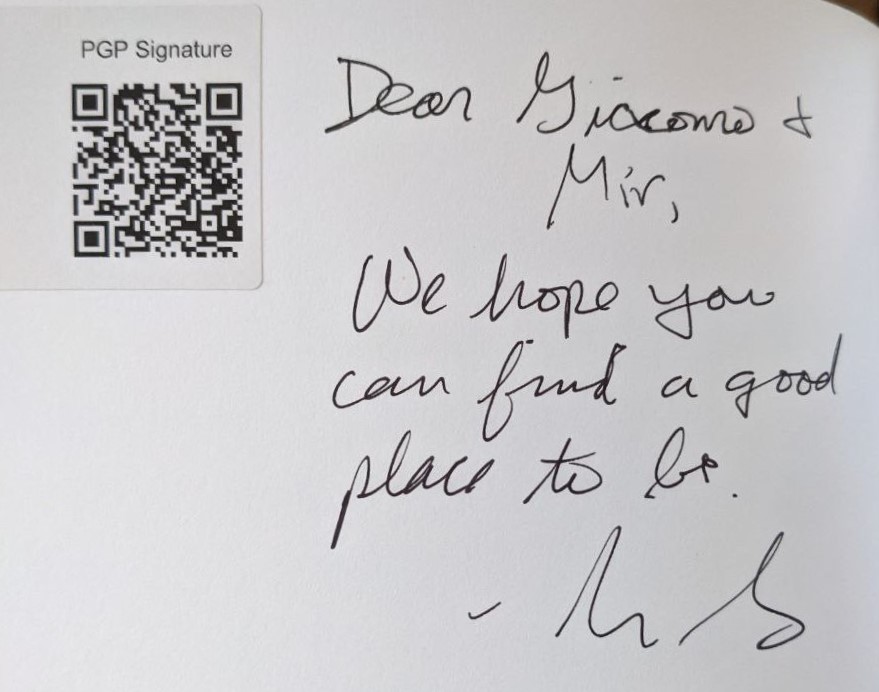 PGP Signature
Dear Giacomo +
Mir,
We hope you
can find a good
place to be.